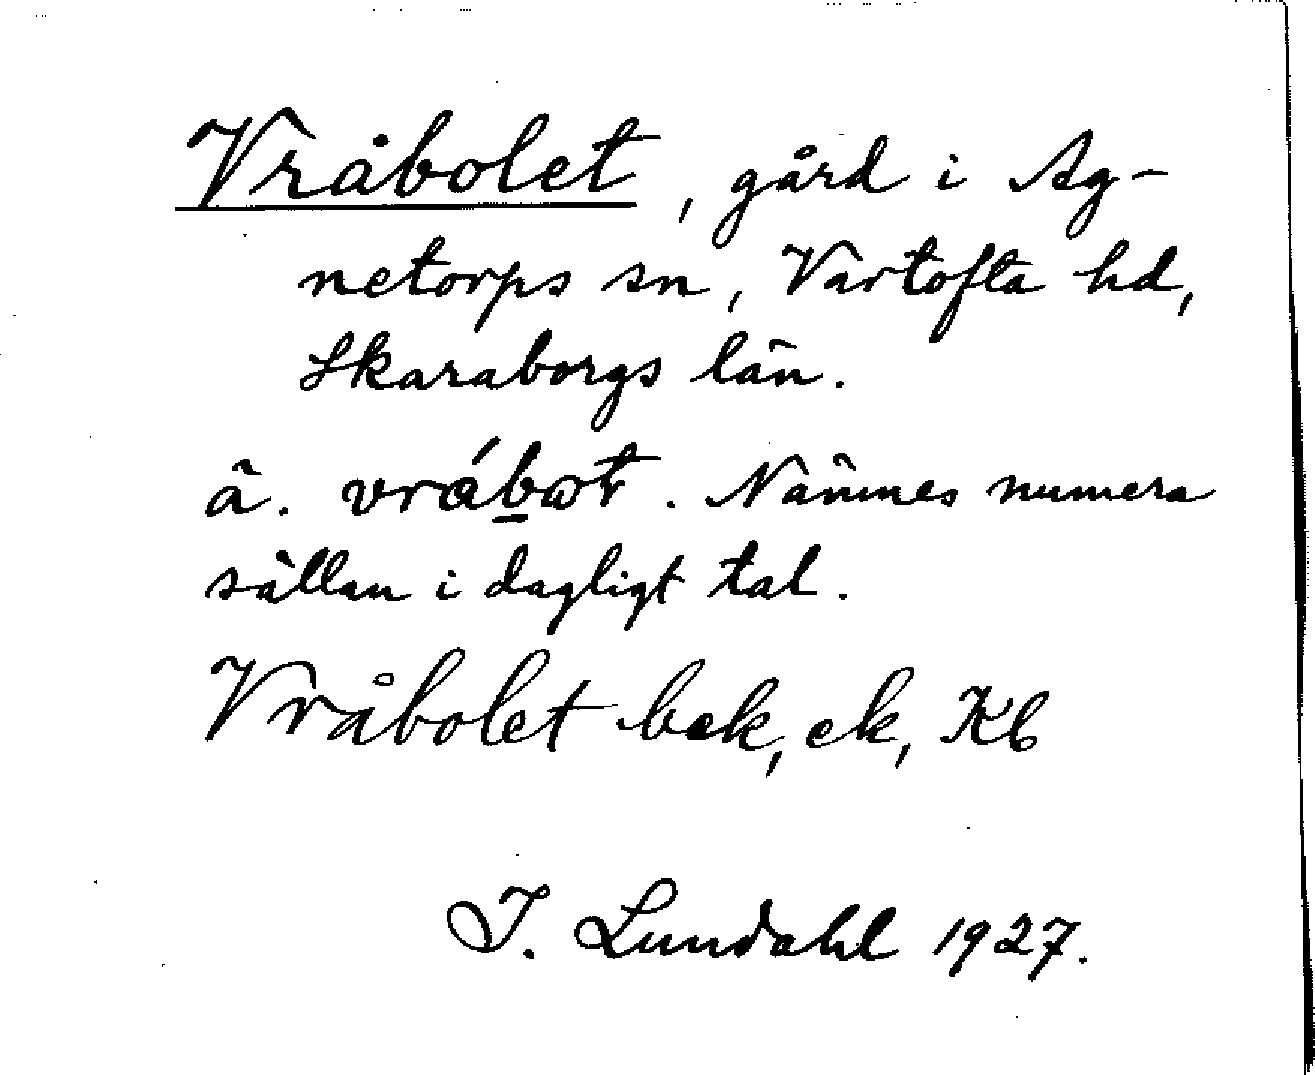 Vråbolet, gård i Ag-
netorps sn, Vartofta hd,
Skaraborgs län.
ä. vrábot. Nämnes numera
sällan i dagligt tal.
Vråbolet bek, ek, Kb
I. Lundahl 1927.